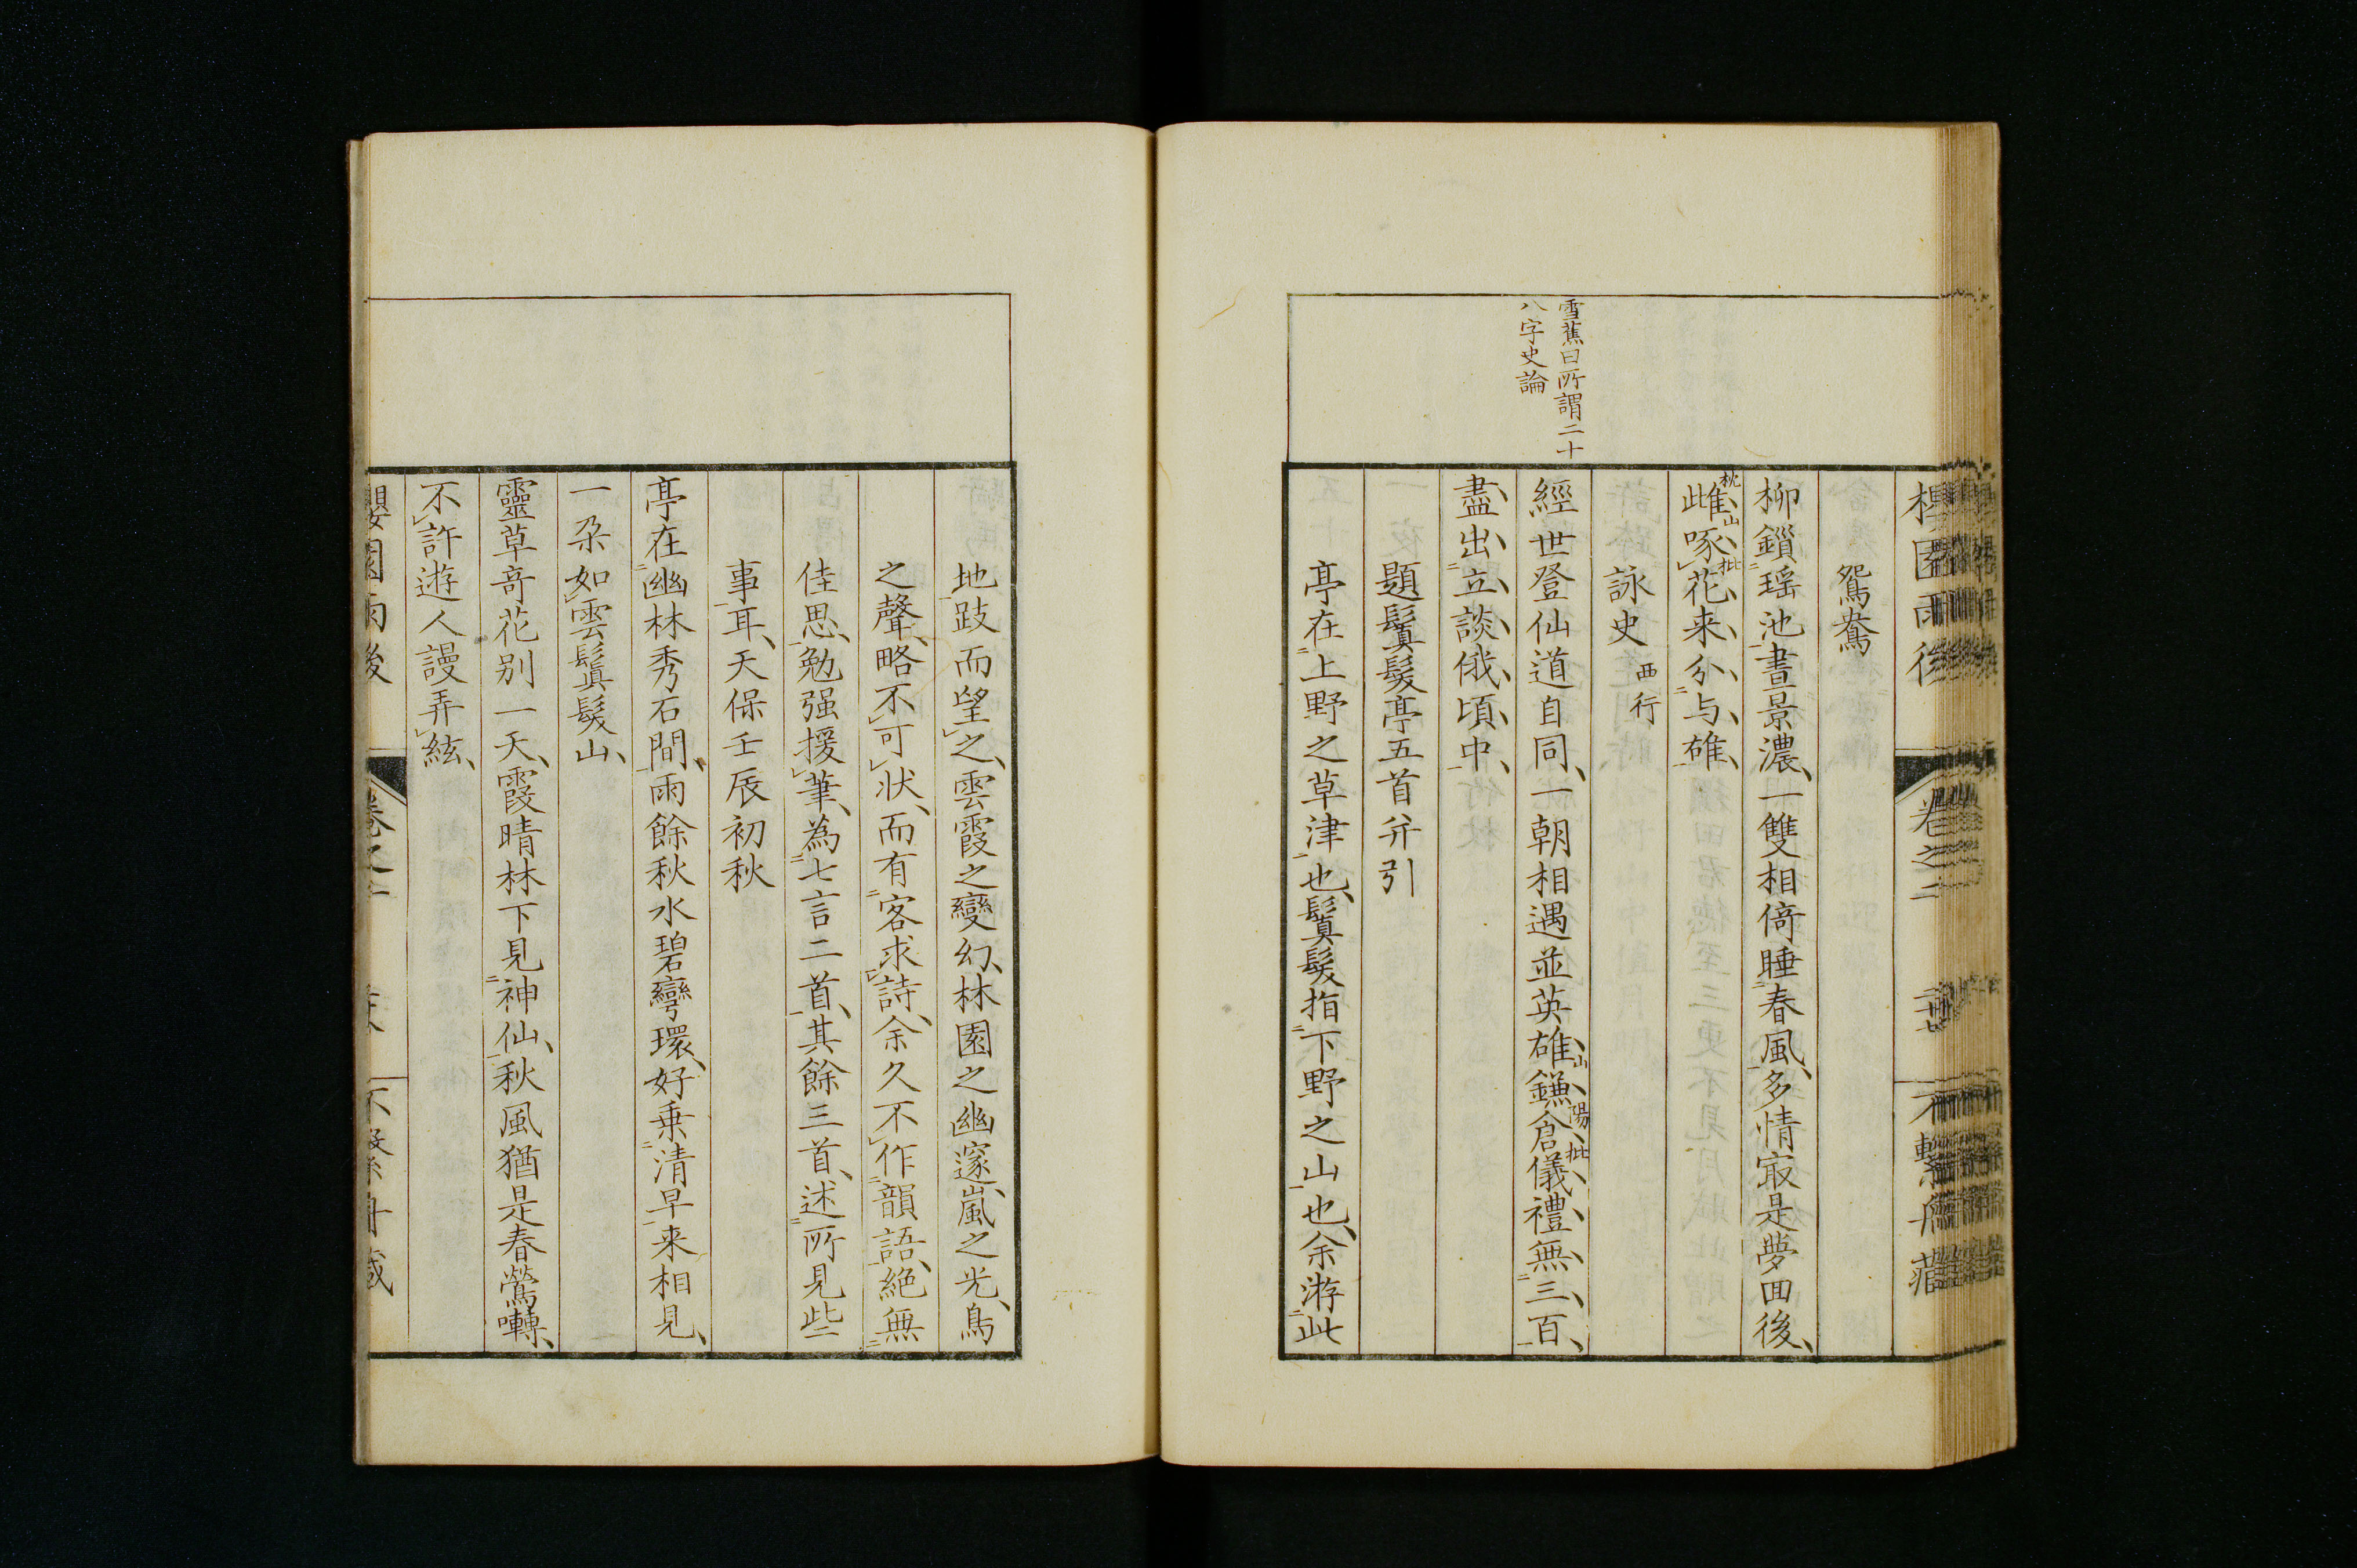 鴛鴦
柳鎖瑶池晝景濃、一雙相倚睡春風、多情㝡是夢回後、
雌啄花来分与雄、
枕山批
詠史 西行
雪蕉曰所謂二十
八字史論
經世登仙道自同、一朝相遇並英雄、鎌倉儀禮無三百、
山陽批
盡出立談俄頃中、
題鬒髮亭五首并引
亭在上野之草津也、鬒髮指下野之山也、余游此
地跂而望之、雲霞之變幻、林園之幽邃、嵐之光、鳥
之聲、略不可状、而有客求詩、余久不作韻語、絶無
佳思、勉强援筆、為七言二首、其餘三首、述所見些
事耳、天保壬辰初秋
亭在幽林秀石間、雨餘秋水碧彎環、好乗清早来相見、
一朶如雲鬒髮山、
靈草竒花别一天、霞晴林下見神仙、秋風猶是春鶯囀、
不許遊人謾弄絃、